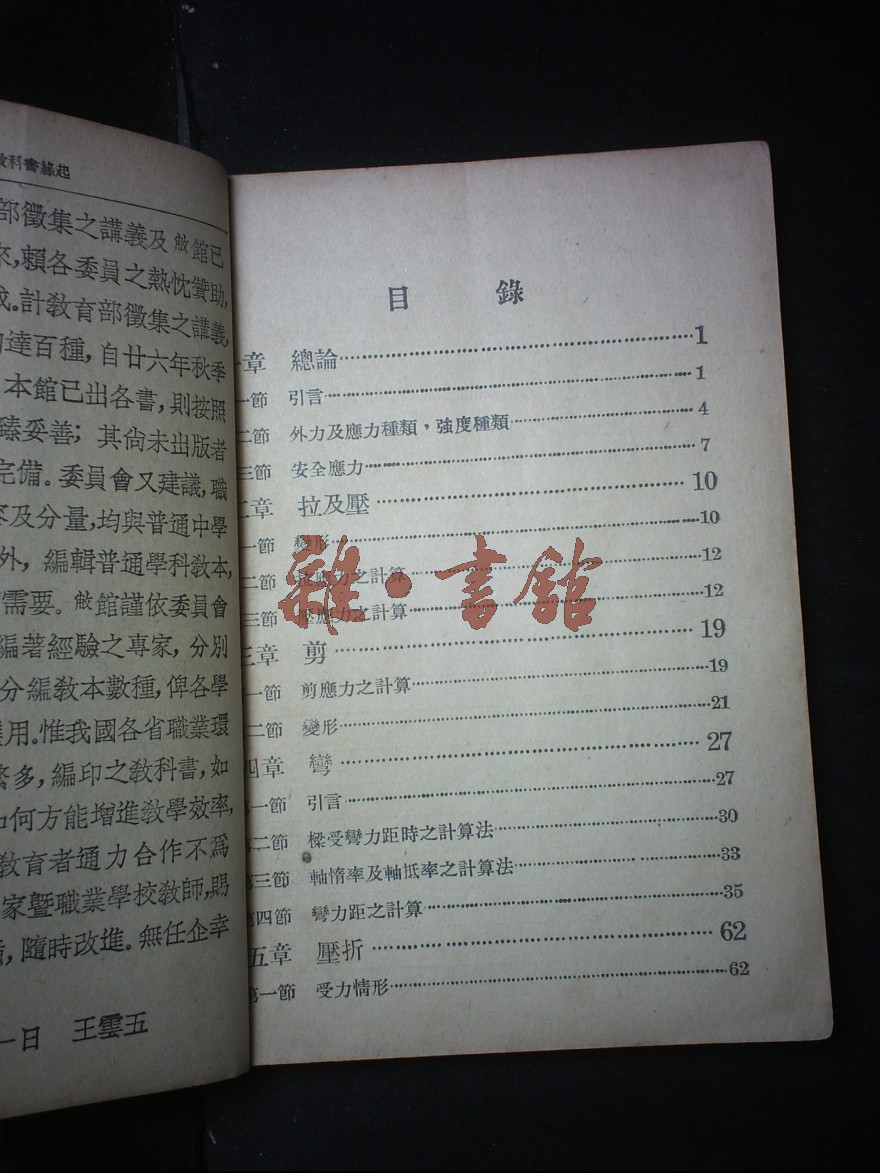 教科書緣起
部徵集之講義及敝館已
來,賴各委員之熱忱贊助,
成。計教育部徵集之講義,
達百種,自廿六年秋季
本館已出各書,則按照
臻妥善;其尙未出版者
完備。委員會又建議,職
及分量,均與普通中學
外,編輯普通學科教本,
需要。敝館謹依委員會
編著經驗之專家,分別
分編教本數種,俾各學
用。惟我國各省職業環
繁多,編印之教科書,如
如何方能增進教學效率,
教育者通力合作不爲
家暨職業學校教師,賜
隨時改進。無任企幸
一日 王雲五
目 錄
一章 總論……1
一節 引言……1
二節 外力及應力種類,強度種類……4
三節 安全應力……7
二章 拉及壓……10
一節 變形……10
二節 拉應力之計算……12
三節 壓應力之計算……12
三章 剪……19
一節 剪應力之計算……19
二節 變形……21
四章 彎……27
第一節 引言……27
第二節 樑受彎力距時之計算法……30
第三節 軸惰率及軸抵率之計算法……33
第四節 彎力距之計算……35
五章 壓折……62
第一節 受力情形……62
雜·書館